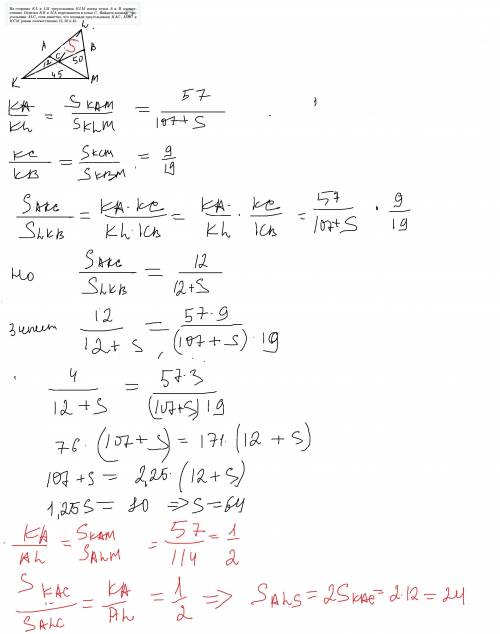 На сторонах KL и LM треугольника KLM взяты точки A и B соответственно. Отрезки KB и MA пересекаются в точке C. Найдите площадь треугольника ALC, если известно, что площади треугольников KAC, и KCM равны соответственно 12, 50 и 45.
L
A
S
B
C
12
50
45
K
M
KA/KL = S KAM / S KLM = 57/(107+S)
KC/KB = S KCM / S KBM = 9/19
S AKC / S LKB = KA·KC / KL·KB = KA/KL · KC/KB = 57/(107+S) · 9/19
Но S AKC / S LKB = 12/(12+S)
Значит 12/(12+S) = 57·9/((107+S)·19)
4/(12+S) = 57·3/((107+S)19)
76·(107+S) = 171·(12+S)
107+S = 2,25·(12+S)
1,25S = 80 => S=64
KA/AL = S KAM / S ALM = 57/114 = 1/2
S KAC / S ALC = KA/AL = 1/2 => S ALS = 2S KAC = 2·12 = 24